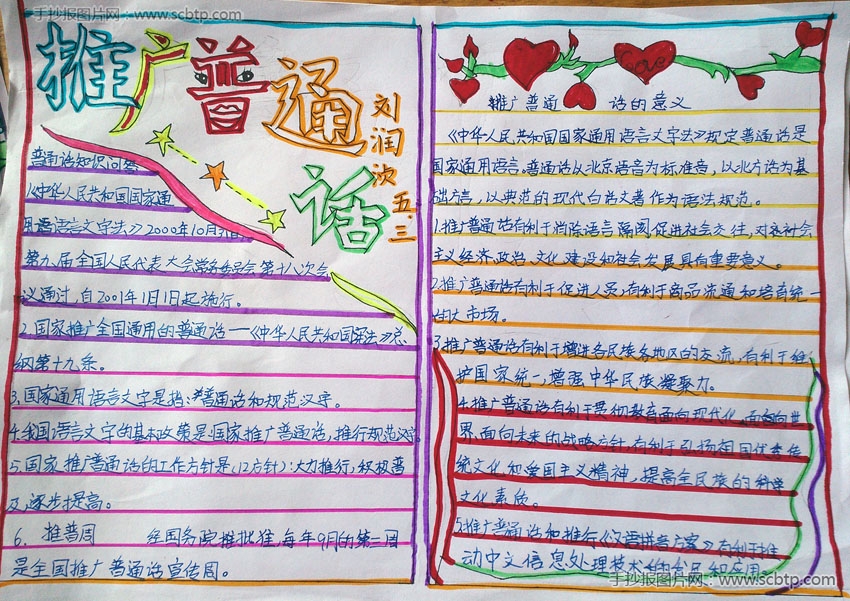 手抄报图片网：www.scbtp.com
推广普通话
刘润
五.三
普通话知识问答
1.《中华人民共和国国家通
用语言文字法》2000年10月31日
第九届全国人民代表大会常务委员会第十八次会
议通过，自2001年1月1日起施行。
2.国家推广全国通用的普通话——《中华人民共和国宪法》总
纲第十九条。
3.国家通用语言文字是指：普通话和规范汉字。
4.我国语言文字的基本政策是：国家推广普通话，推行规范汉字
5.国家推广普通话的工作方针是(12方针)：大力推行，积极普
及，逐步提高。
6. 推普周 经国务院批准，每年9月的第三周
是全国推广普通话宣传周。
Love
推广普通 话的意义
《中华人民共和国国家通用语言文字法》规定普通话是
国家通用语言。普通话从北京语音为标准音，以北方话为基
础方言，以典范的现代白话文著作为语法规范。
1.推广普通话有利于消除语言隔阂促进社会交往，对各社会
主义经济、政治、文化建设和社会发展具有重要意义。
2.推广普通话有利于促进人员，有利于商品流通和培育统一
的大市场。
3.推广普通话有利于增进各民族各地区的交流，有利于维
护国家统一，增强中华民族凝聚力。
4.推广普通话有利于贯彻教育面向现代化，面向世
界，面向未来的战略方针，有利于弘扬祖国优秀传
统文化和爱国主义精神，提高全民族的科学
文化素质。
5.推广普通话和推行《汉语拼音方案》有利于推
动中文信息处理技术的发展和应用
手抄报图片网：www.scbtp.com